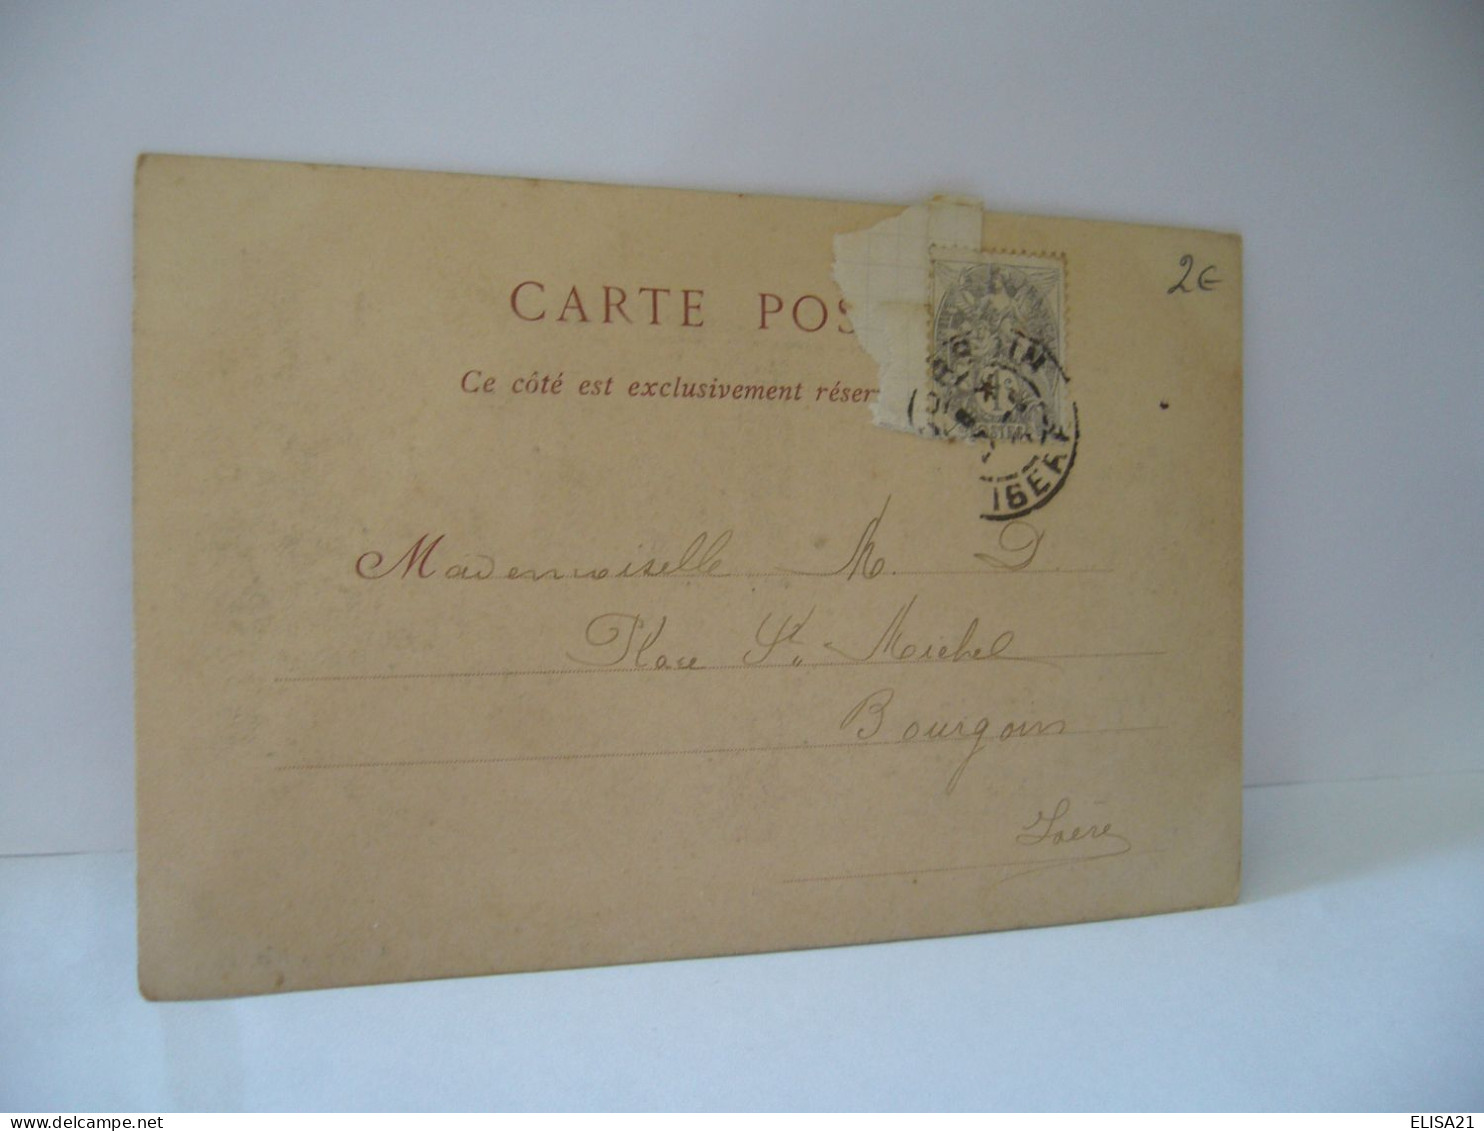 CARTE POS
2€
Ce côté est exclusivement réser
IN
ISÈRE
Mademoiselle M. D.
Place St. Michel
Bourgoin
Isère
ELISA21